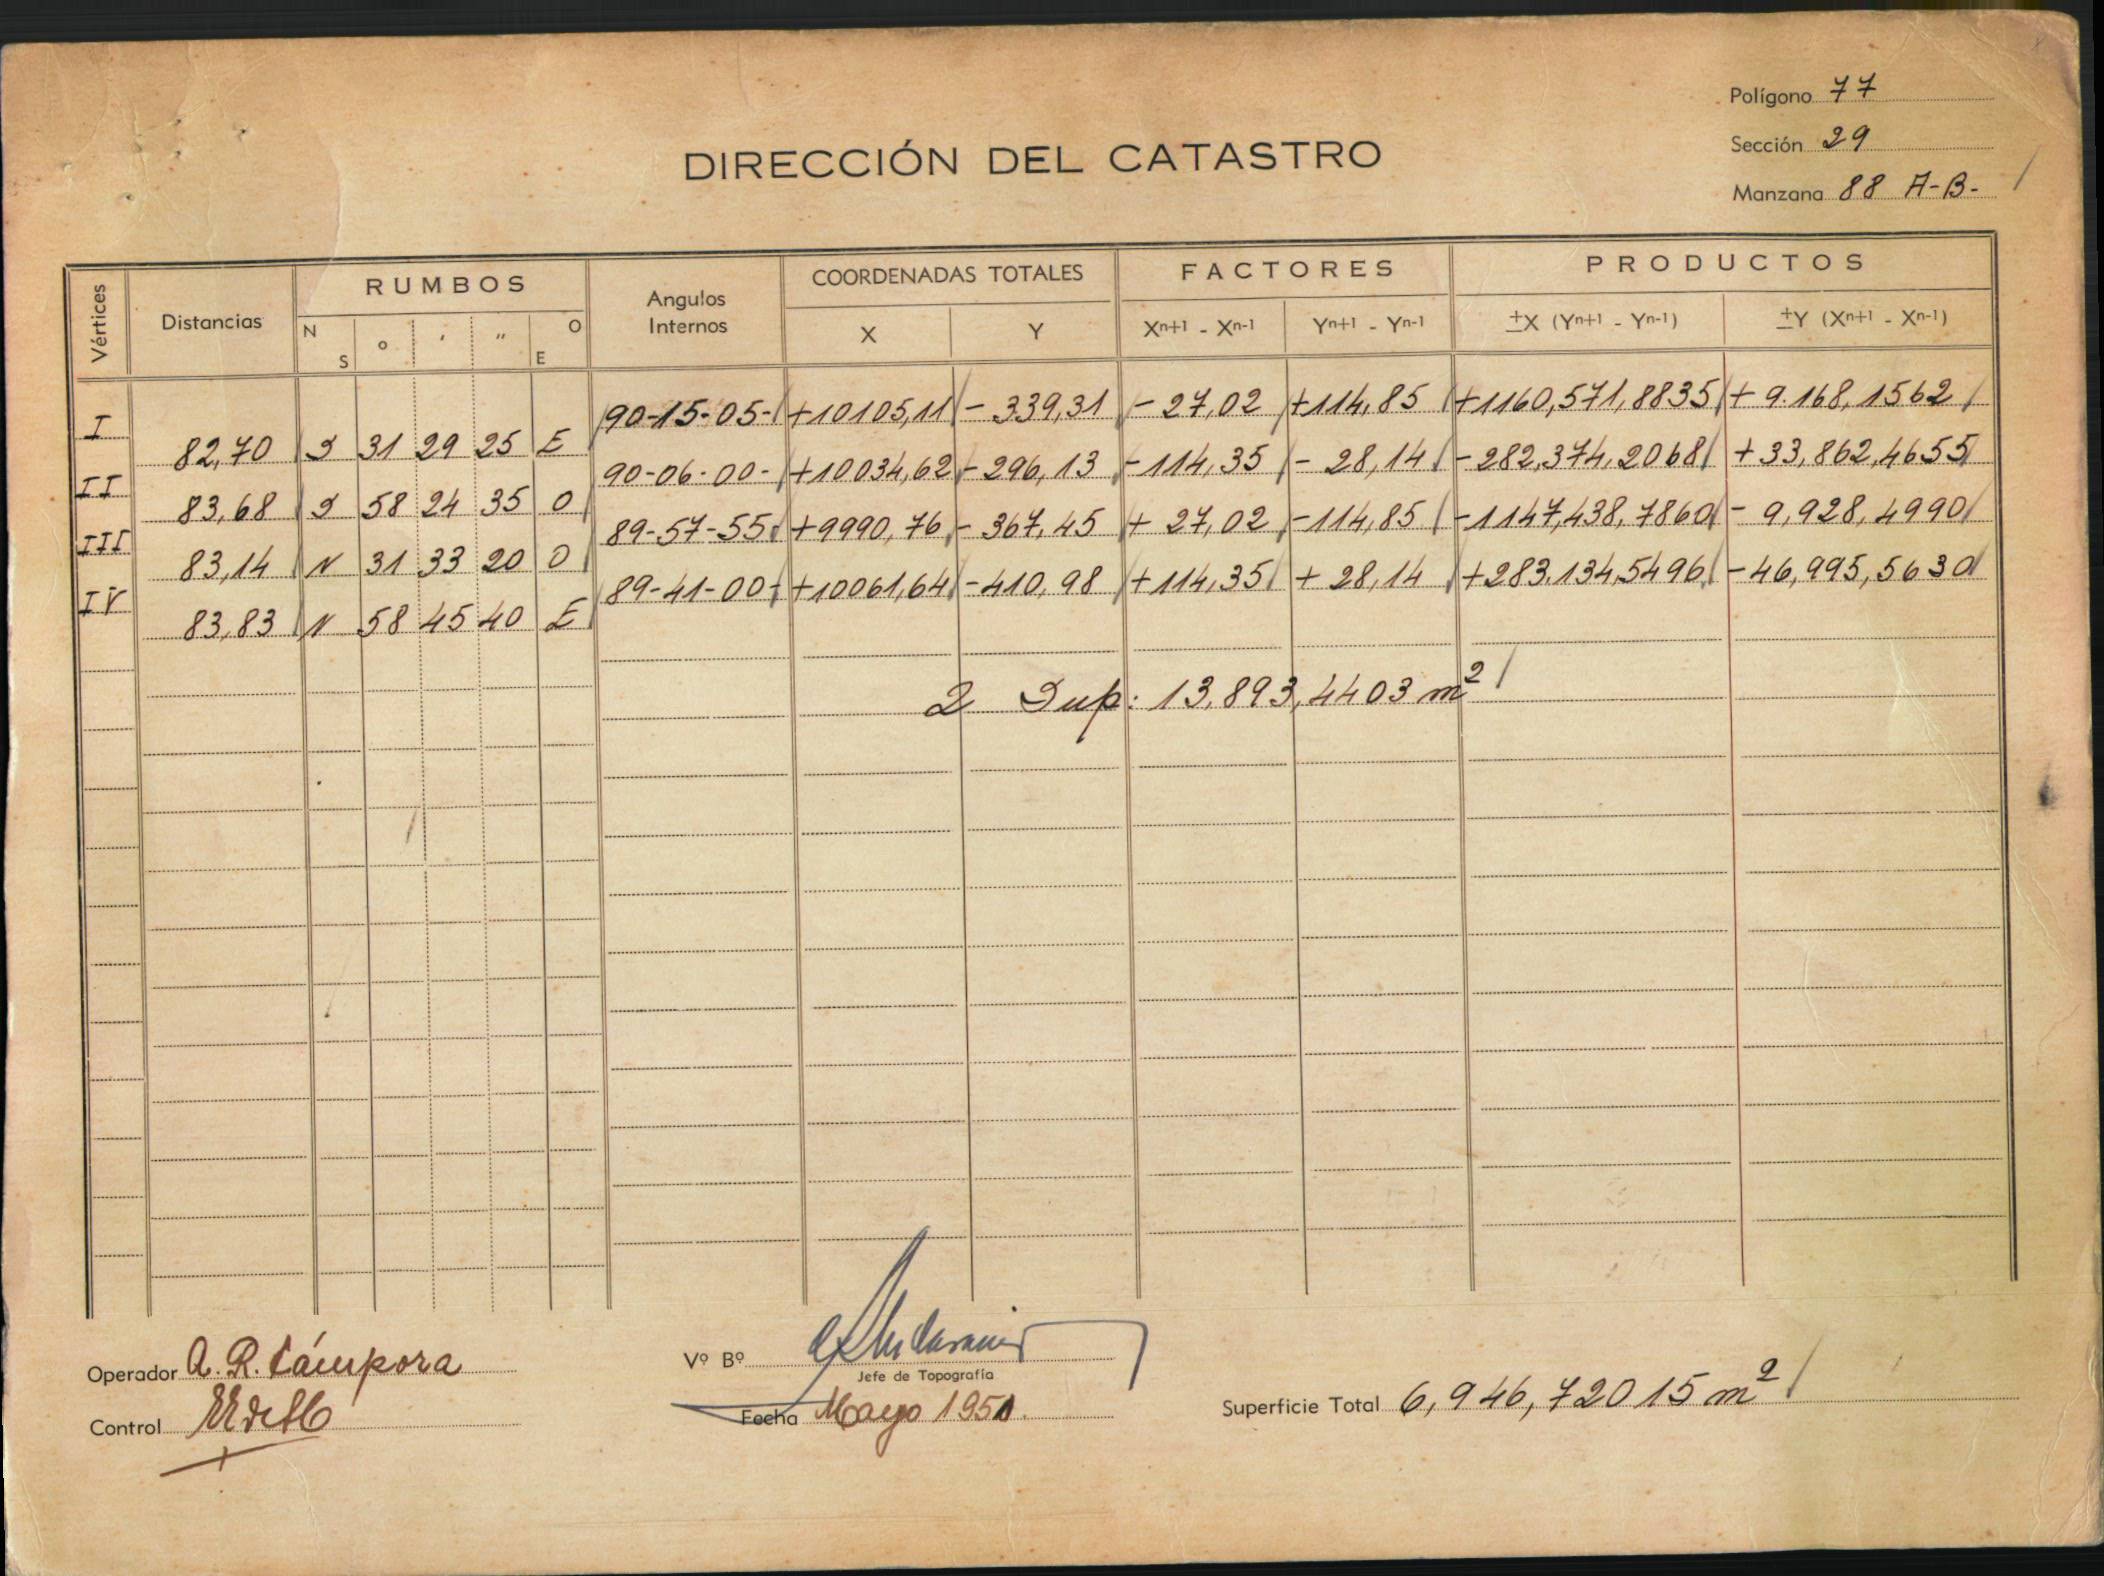 Polígono 77
Sección 29
Manzana 88 A-B-
DIRECCIÓN DEL CATASTRO
Vértices Distancias RUMBOS Angulos Internos COORDENADAS TOTALES FACTORES PRODUCTOS
N S ° ′ ″ O E X Y Xn+1 - Xn-1 Yn+1 - Yn-1 ±X (Yn+1 - Yn-1) ±Y (Xn+1 - Xn-1)
I 90-15-05- +10105,11 - 339,31 - 27,02 +114,85 +1160,571,8835 + 9.168,1562
82,70 S 31 29 25 E
II 90-06-00- +10034,62 - 296,13 -114,35 - 28,14 -282,374,2068 + 33,862,4655
83,68 S 58 24 35 O
III 89-57-55 +9990,76 - 367,45 + 27,02 -114,85 -1147,438,7860 - 9,928,4990
83,14 N 31 33 20 O
IV 89-41-00- +10061,64 -410,98 +114,35 + 28,14 +283.134,5496 -46,995,5630
83,83 N 58 45 40 E
2 Sup: 13,893,4403 m²
Operador A. R. Cámpora
Control
Vº Bº
Jefe de Topografía
Fecha Mayo 1951
Superficie Total 6,946,72015 m²